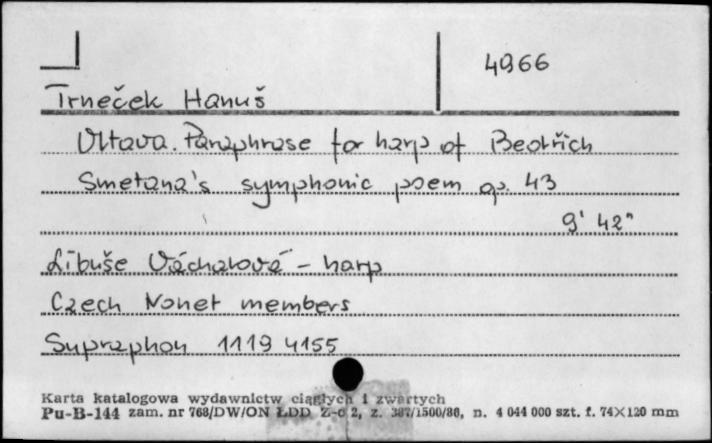 4966
Trneček Hanuš
Vltava. Paraphrase for harp of Bedřich
Smetana's symphonic poem op. 43
9' 42"
Libuše Váchalová - harp
Czech Nonet members
Supraphon 1119 4155
Karta katalogowa wydawnictw ciągłych i zwartych
Pu-B-144 zam. nr 768/DW/ON ŁDD Z-c 2, z. 387/1500/86, n. 4 044 000 szt. f. 74×120 mm